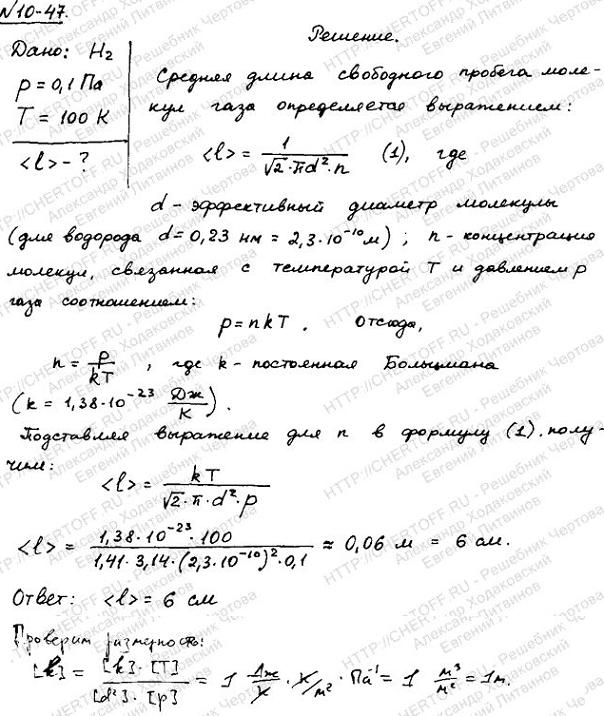 №10-47.
Дано: H₂
p = 0,1 Па
T = 100 К
<l> - ?
Решение.
Средняя длина свободного пробега моле-
кул газа определяется выражением:
<l> = 1 / (√2·πd²·n) (1), где
d - эффективный диаметр молекулы
(для водорода d = 0,23 нм = 2,3·10⁻¹⁰ м) ; n - концентрация
молекул, связанная с температурой T и давлением p
газа соотношением:
p = nkT . Отсюда,
n = p/kT , где k - постоянная Больцмана
(k = 1,38·10⁻²³ Дж/К).
Подставляя выражение для n в формулу (1) полу-
чим:
<l> = kT / (√2·π·d²·p)
<l> = 1,38·10⁻²³·100 / (1,41·3,14·(2,3·10⁻¹⁰)²·0,1) ≈ 0,06 м = 6 см.
Ответ: <l> = 6 см
Проверим размерность:
[l] = [k]·[T] / ([d²]·[p]) = 1 Дж/К · К/м² · Па⁻¹ = 1 м³/м² = 1м.
HTTP://CHERTOFF.RU - Решебник Чертова
Александр Ходаковский
Евгений Литвинов